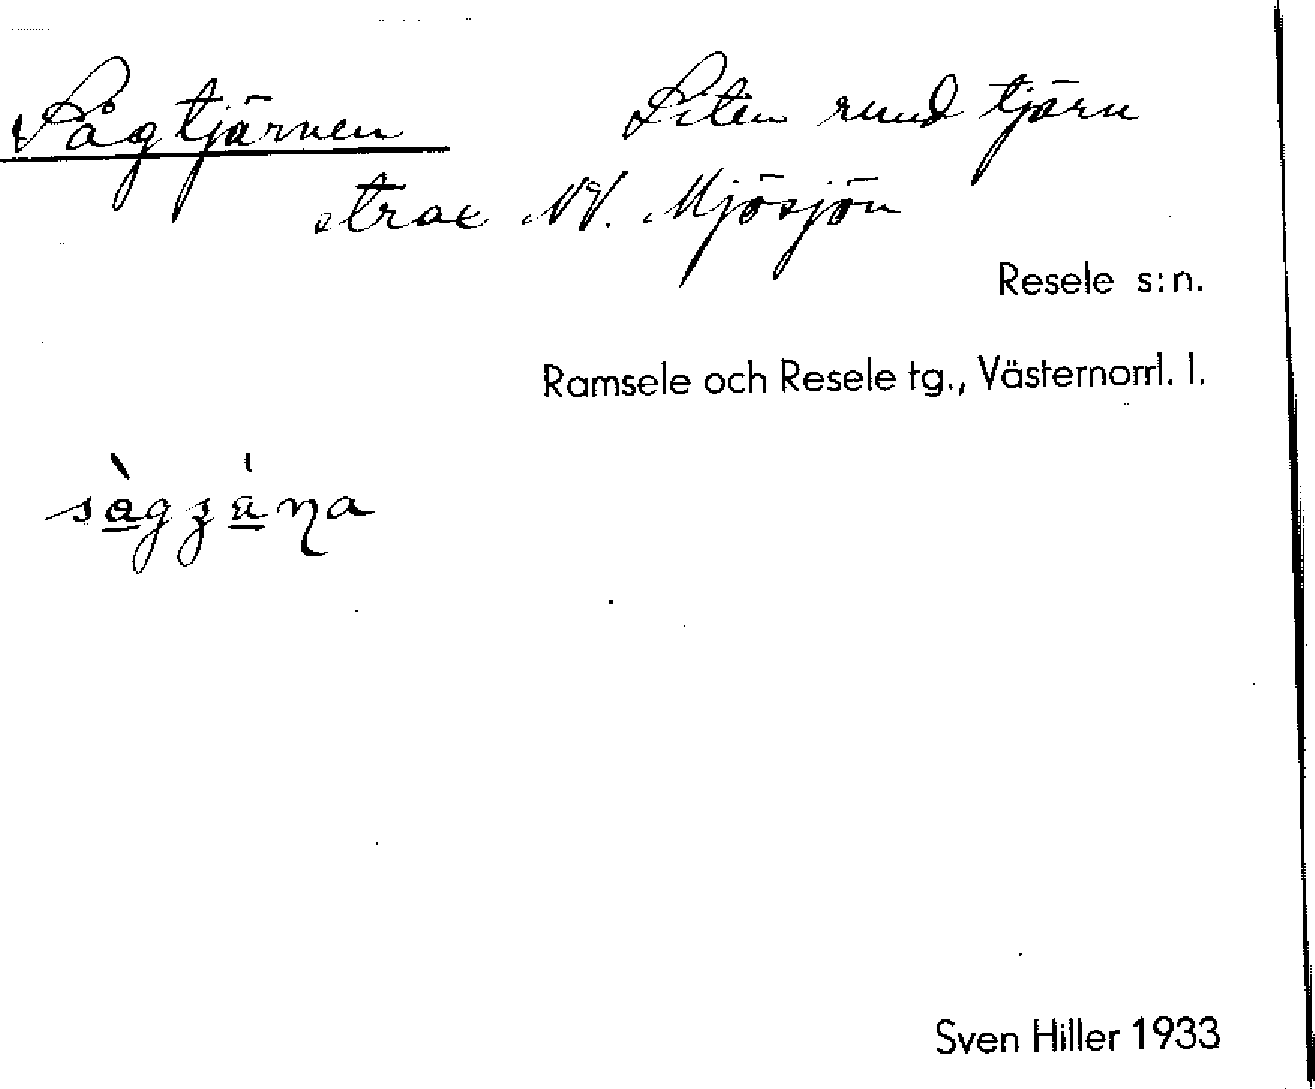 Sågtjärnen Liten rund tjärn
strax NV. Mjösjön
Resele s:n.
Ramsele och Resele tg., Västernorrl. l.
Sven Hiller 1933